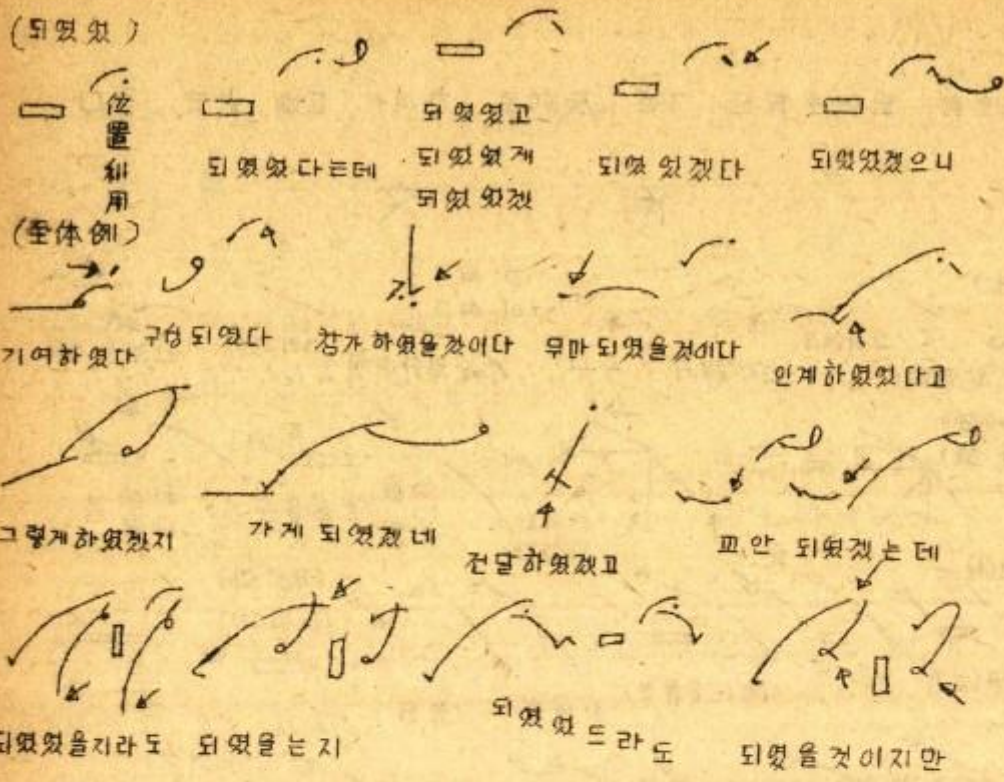 (되였었)
位置利用
되였었다는데
되였었고
되였었게
되였었겠
되였었겠다
되였었겠으니
(全体例)
기여하였다
구성되였다
참가하였을것이다
무마되였을것이다
인계하였었다고
그렇게하였겠지
가게 되였겠네
전달하였겠고
교안 되였겠는데
되였었을지라도
되였을는지
되였었드라도
되였을것이지만